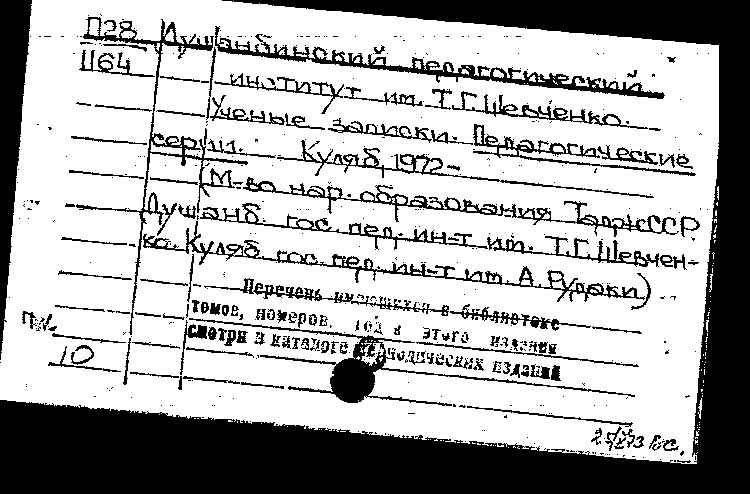 П28 Душанбинский педагогический
1164
институт им. Т.Г. Шевченко.
Ученые записки. Педагогические
серии. Куляб, 1972-
(М-во нар. образования ТаджССР.
Душанб. гос. пед. ин-т им. Т.Г. Шевчен-
ко. Куляб. гос. пед. ин-т им. А. Рудаки).
Перечень имеющихся в библиотеке
томов, номеров, год а этого издания
смотри в каталоге периодических изданий
10